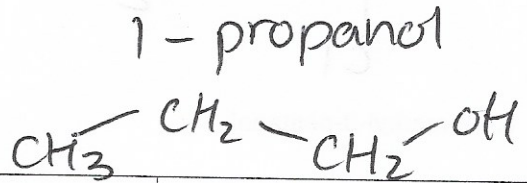 1 - propanol
CH₃ - CH₂ - CH₂ - OH